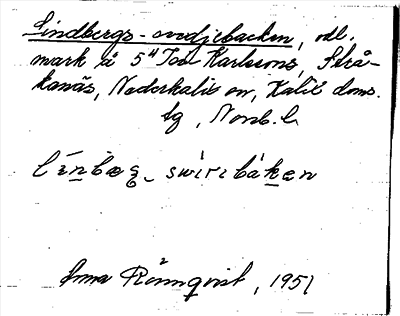 Lindbergs-svedjebacken, odl.
mark å 5⁴ Joh Karlssons, Strå-
kanäs, Nederkalix sn, Kalix doms.
tg, Norrb. l.
línbæg_swíribákæn
Irma Rönnqvist, 1951